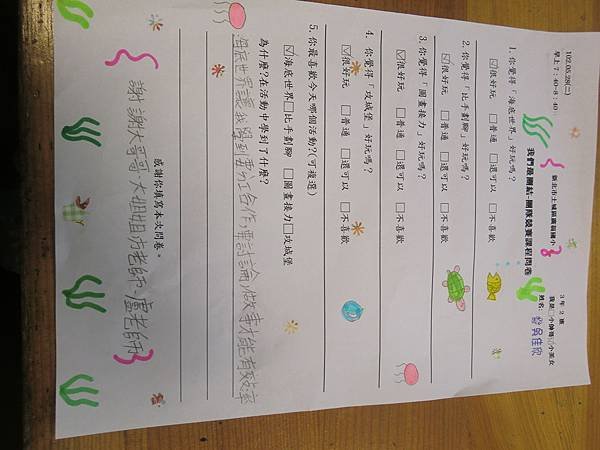 102.05.28(二)
早上7:40-8:40
新北市土城區廣福國小
我們最團結-團隊競賽課程問卷
3年2班
我是□小帥哥☑小美女
姓名:
佳欣
1. 你覺得「海底世界」好玩嗎?
☑很好玩 □普通 □還可以 □不喜歡
2. 你覺得「比手劃腳」好玩嗎?
☑很好玩 □普通 □還可以 □不喜歡
3. 你覺得「圖畫接力」好玩嗎?
☑很好玩 □普通 □還可以 □不喜歡
4. 你覺得「攻城堡」好玩嗎?
☑很好玩 □普通 □還可以 □不喜歡
5. 你最喜歡今天哪個活動?(可複選)
☑海底世界□比手劃腳 □圖畫接力□攻城堡
為什麼?在活動中學到了什麼?
海底世界讓我學到要分工合作,要討論,做事才能有效率
感謝你填寫本次問卷。
謝謝大哥哥、大姐姐、方老師、盧老師